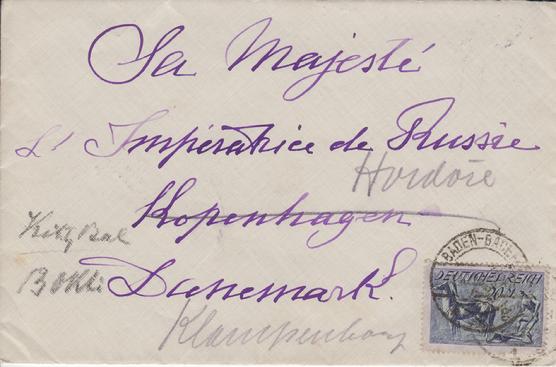 Sa Majesté
L'Impératrice de Russie
Hvidöre
Kopenhagen
Danemark.
Klampenborg
BADEN-BADEN
DEUTSCHES REICH